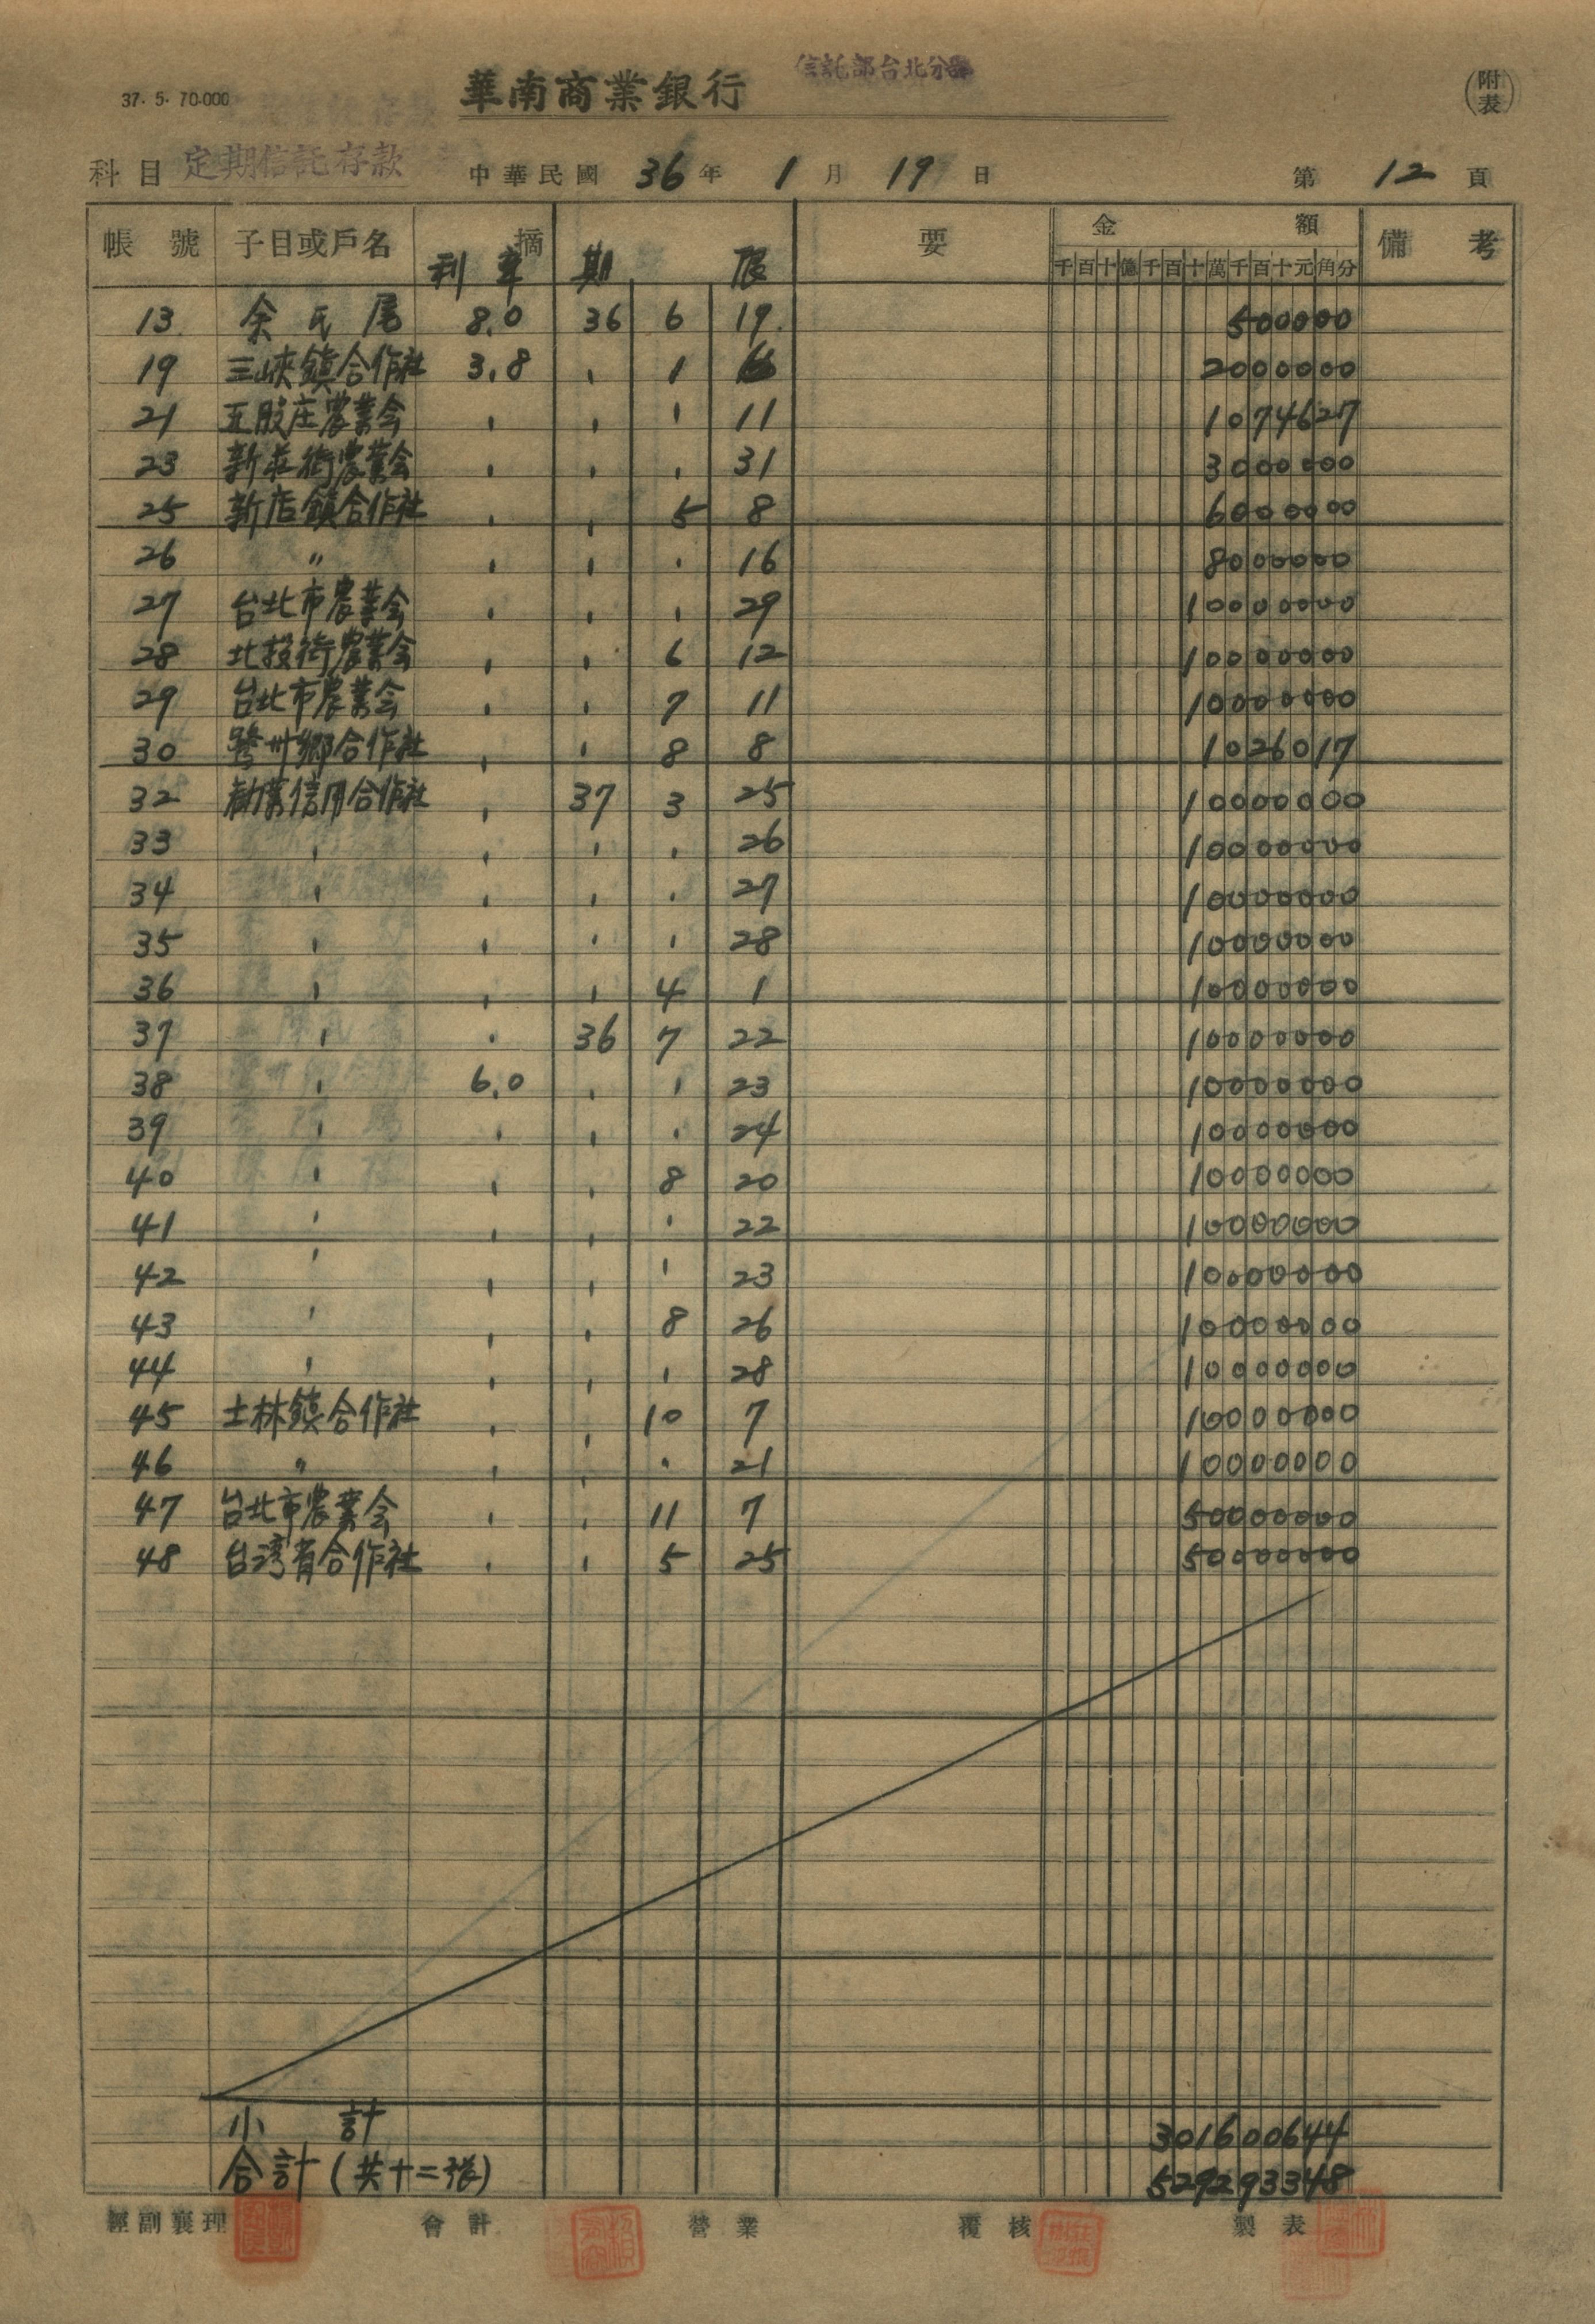 信託部台北分部
37. 5. 70.000 華南商業銀行 (附表)
科目 定期信託存款 中華民國 36 年 1 月 19 日 第 12 頁
帳號 子目或戶名 摘 要 金額 備考
利率 期限 千百十億千百十萬千百十元角分
13 余氏尾 8.0 36 6 19 500000
19 三峽鎮合作社 3.8 , 1 2000000
21 五股庄農業会 , , , 11 1074627
23 新莊街農業会 , , , 31 3000000
25 新店鎮合作社 , , 5 8 6000000
26 〃 , , , 16 8000000
27 台北市農業会 , , , 29 10000000
28 北投街農業会 , , 6 12 10000000
29 台北市農業会 , , 7 11 10000000
30 鷺州鄉合作社 , , 8 8 1026017
32 勸業信用合作社 , 37 3 25 10000000
33 , , , , 26 10000000
34 , , , , 27 10000000
35 , , , , 28 10000000
36 , , , 4 1 10000000
37 , , 36 7 22 10000000
38 , 6.0 , , 23 10000000
39 , , , , 24 10000000
40 , , , 8 20 10000000
41 , , , , 22 10000000
42 , , , , 23 10000000
43 , , , 8 26 10000000
44 , , , , 28 10000000
45 士林鎮合作社 , , 10 7 10000000
46 〃 , , , 21 10000000
47 台北市農業会 , , 11 7 50000000
48 台湾省合作社 , , 5 25 50000000
小計 301600644
合計(共十二張) 529293348
經副襄理 會計 營業 覆核 製表